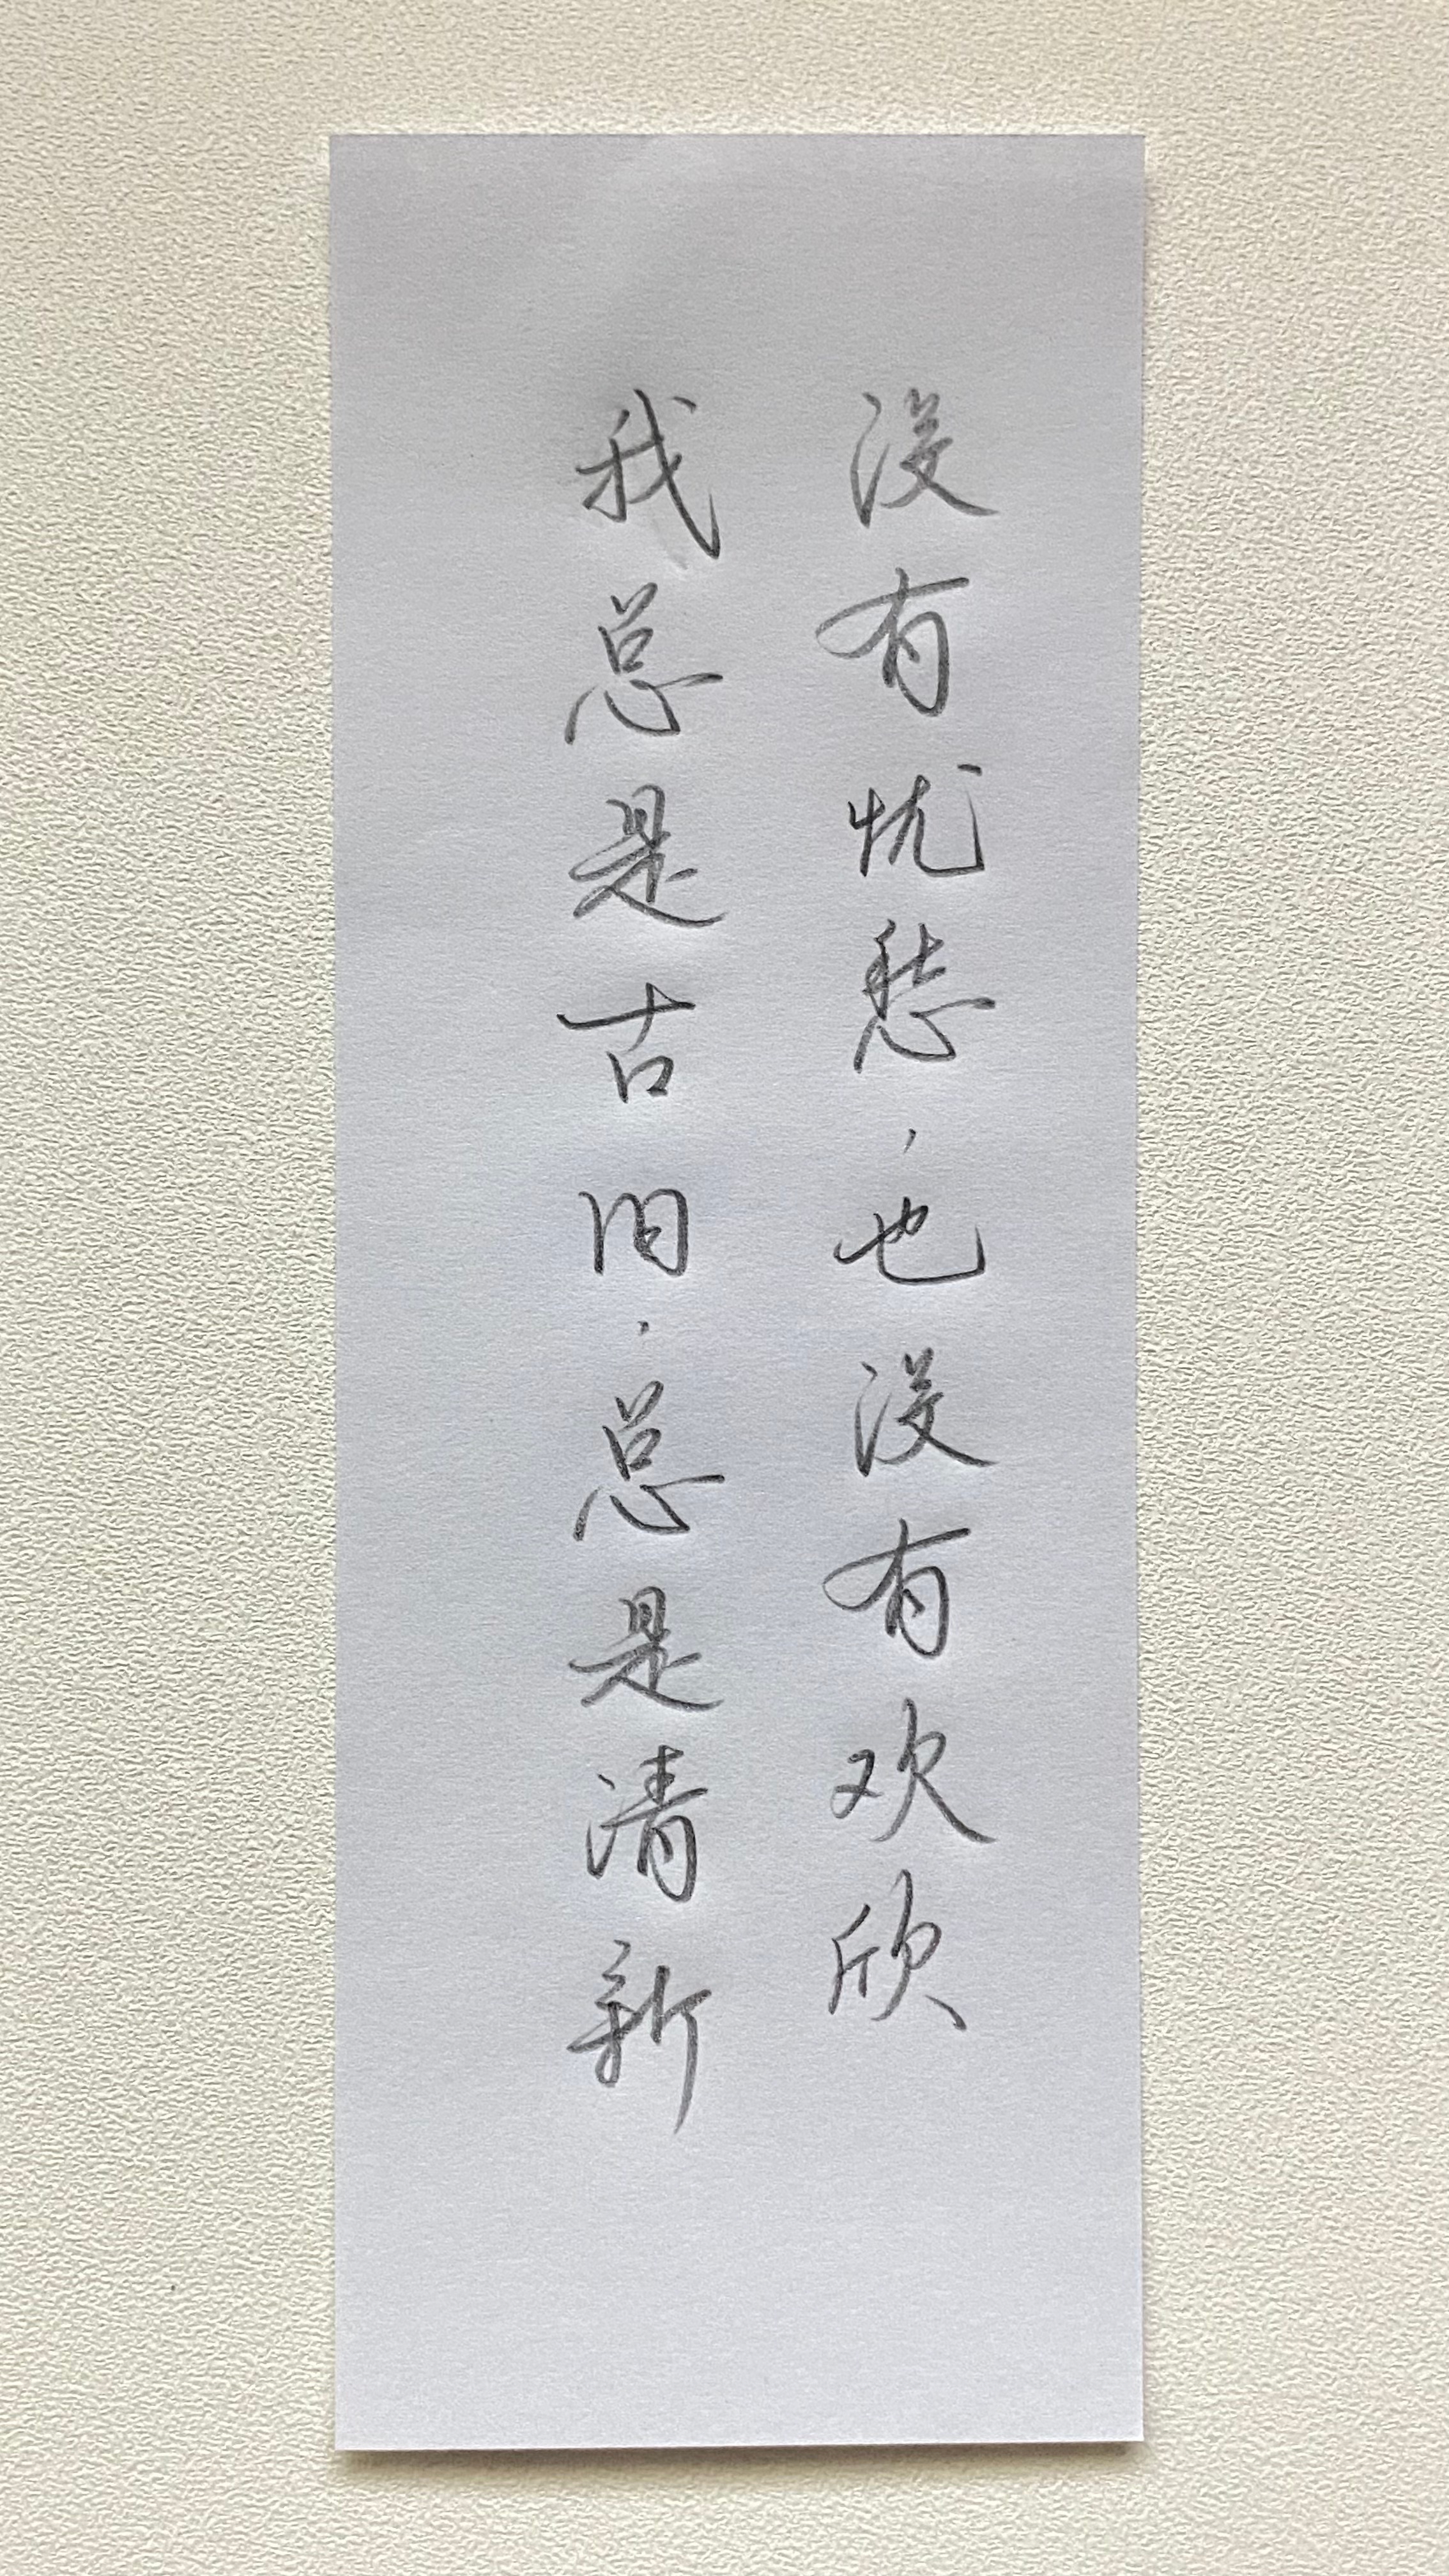 没有忧愁，也没有欢欣
我总是古旧，总是清新